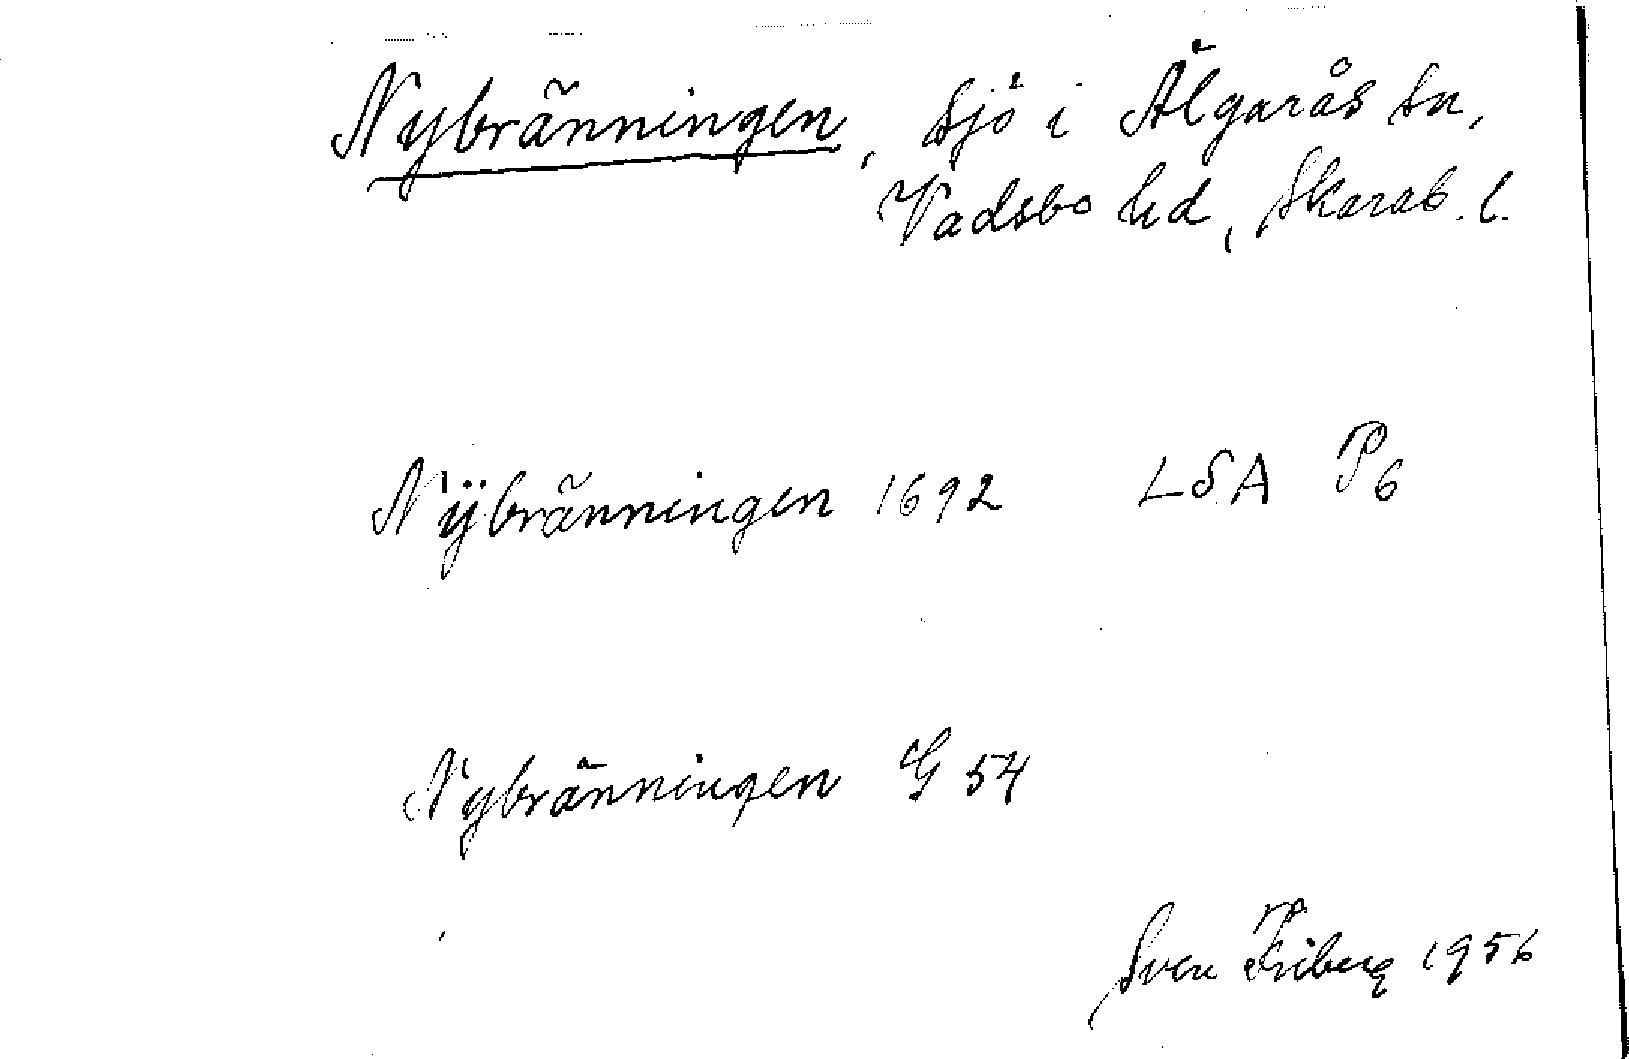 Nybränningen, sjö i Älgarås sn,
Vadsbo hd, Skarab. l.
Nÿbränningen 1692 LSA P6
Nybränningen G 54
Sven Friberg 1956